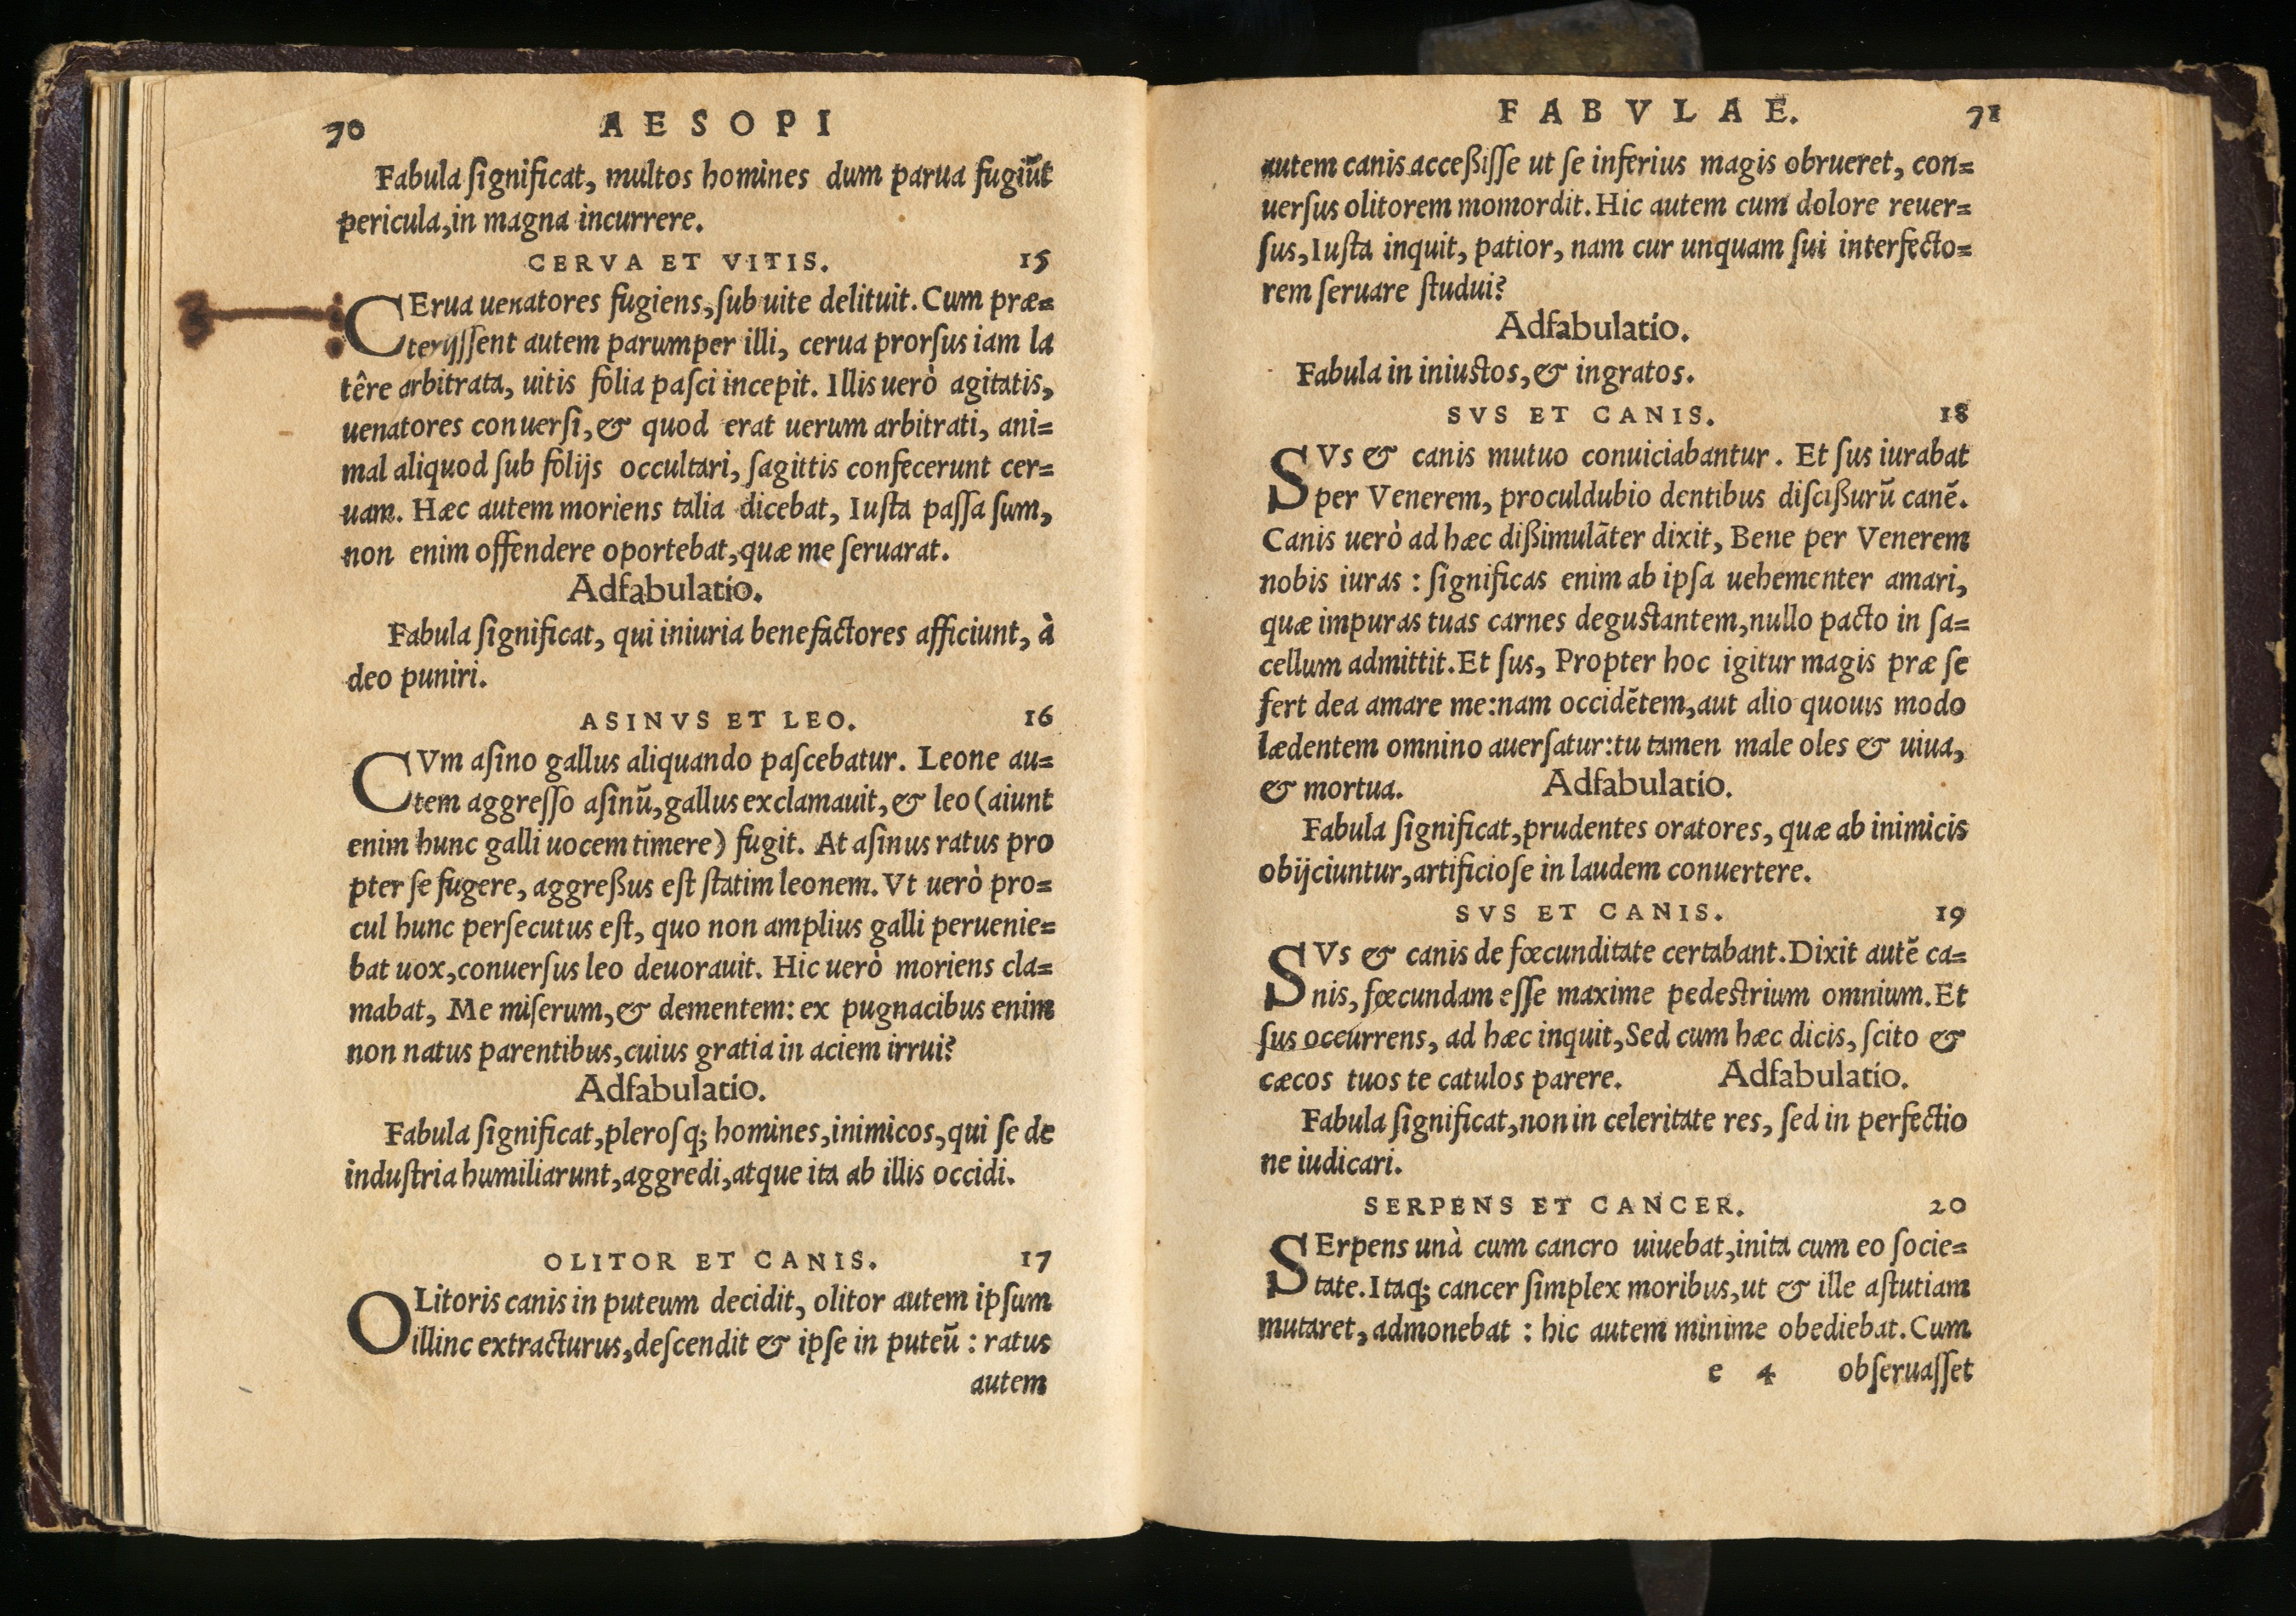 70 AESOPI
Fabula ſignificat, multos homines dum parua fugiũt
pericula, in magna incurrere.
CERVA ET VITIS. 15
CErua uenatores fugiens, ſub uite delituit. Cum præ=
terijſſent autem parumper illi, cerua prorſus iam la
têre arbitrata, uitis folia paſci incepit. Illis uerò agitatis,
uenatores conuerſi, & quod erat uerum arbitrati, ani=
mal aliquod ſub folijs occultari, ſagittis confecerunt cer=
uam. Hæc autem moriens talia dicebat, Iuſta paſſa ſum,
non enim offendere oportebat, quæ me ſeruarat.
Adfabulatio.
Fabula ſignificat, qui iniuria benefactores afficiunt, à
deo puniri.
ASINVS ET LEO. 16
CVm aſino gallus aliquando paſcebatur. Leone au=
tem aggreſſo aſinũ, gallus exclamauit, & leo (aiunt
enim hunc galli uocem timere) fugit. At aſinus ratus pro
pter ſe fugere, aggreßus eſt ſtatim leonem. Vt uerò pro=
cul hunc perſecutus eſt, quo non amplius galli peruenie=
bat uox, conuerſus leo deuorauit. Hic uerò moriens cla=
mabat, Me miſerum, & dementem: ex pugnacibus enim
non natus parentibus, cuius gratia in aciem irrui?
Adfabulatio.
Fabula ſignificat, pleroſq; homines, inimicos, qui ſe de
induſtria humiliarunt, aggredi, atque ita ab illis occidi.
OLITOR ET CANIS. 17
OLitoris canis in puteum decidit, olitor autem ipſum
illinc extracturus, deſcendit & ipſe in puteũ : ratus
autem
FABVLAE. 71
autem canis acceßiſſe ut ſe inferius magis obrueret, con=
uerſus olitorem momordit. Hic autem cum dolore reuer=
ſus, Iuſta inquit, patior, nam cur unquam ſui interfecto=
rem ſeruare ſtudui?
Adfabulatio.
Fabula in iniustos, & ingratos.
SVS ET CANIS. 18
SVs & canis mutuo conuiciabantur. Et ſus iurabat
per Venerem, proculdubio dentibus diſcißurũ canẽ.
Canis uerò ad hæc dißimulãter dixit, Bene per Venerem
nobis iuras : ſignificas enim ab ipſa uehementer amari,
quæ impuras tuas carnes degustantem, nullo pacto in ſa=
cellum admittit. Et ſus, Propter hoc igitur magis præ ſe
fert dea amare me: nam occidẽtem, aut alio quouis modo
lædentem omnino auerſatur: tu tamen male oles & uiua,
& mortua. Adfabulatio.
Fabula ſignificat, prudentes oratores, quæ ab inimicis
obijciuntur, artificioſe in laudem conuertere.
SVS ET CANIS. 19
SVs & canis de fœcunditate certabant. Dixit autẽ ca=
nis, fœcundam eſſe maxime pedestrium omnium. Et
ſus occurrens, ad hæc inquit, Sed cum hæc dicis, ſcito &
cæcos tuos te catulos parere. Adfabulatio.
Fabula ſignificat, non in celeritate res, ſed in perfectio
ne iudicari.
SERPENS ET CANCER. 20
SErpens unà cum cancro uiuebat, inita cum eo ſocie=
tate. Itaq; cancer ſimplex moribus, ut & ille aſtutiam
mutaret, admonebat : hic autem minime obediebat. Cum
e 4 obſeruaſſet